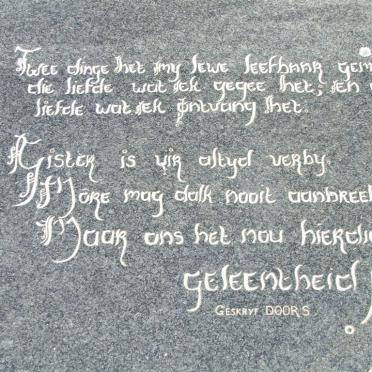 Twee dinge het my lewe leefbaar gem
die liefde wat ek gegee het; en
liefde wat ek ontvang het.
Gister is vir altyd verby.
Môre mag dalk nooit aanbreek
Maar ons het nou hierdie
geleentheid
GESKRYF DOOR S